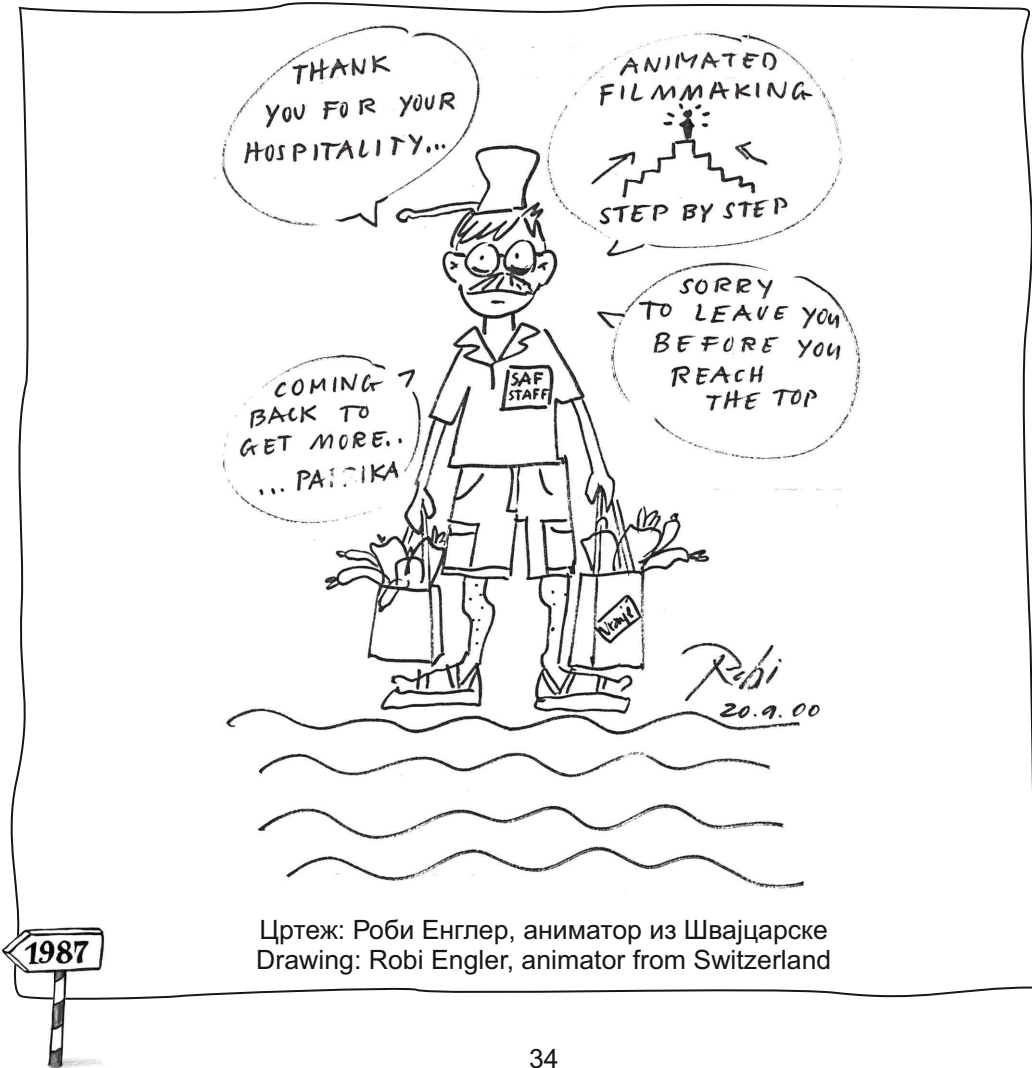 THANK
YOU FOR YOUR
HOSPITALITY...
ANIMATED
FILMMAKING
STEP BY STEP
SORRY
TO LEAVE YOU
BEFORE YOU
REACH
THE TOP
COMING
BACK TO
GET MORE..
... PAPRIKA
SAF
STAFF
Vranje
Robi
20.9.00
Цртеж: Роби Енглер, аниматор из Швајцарске
Drawing: Robi Engler, animator from Switzerland
1987
34